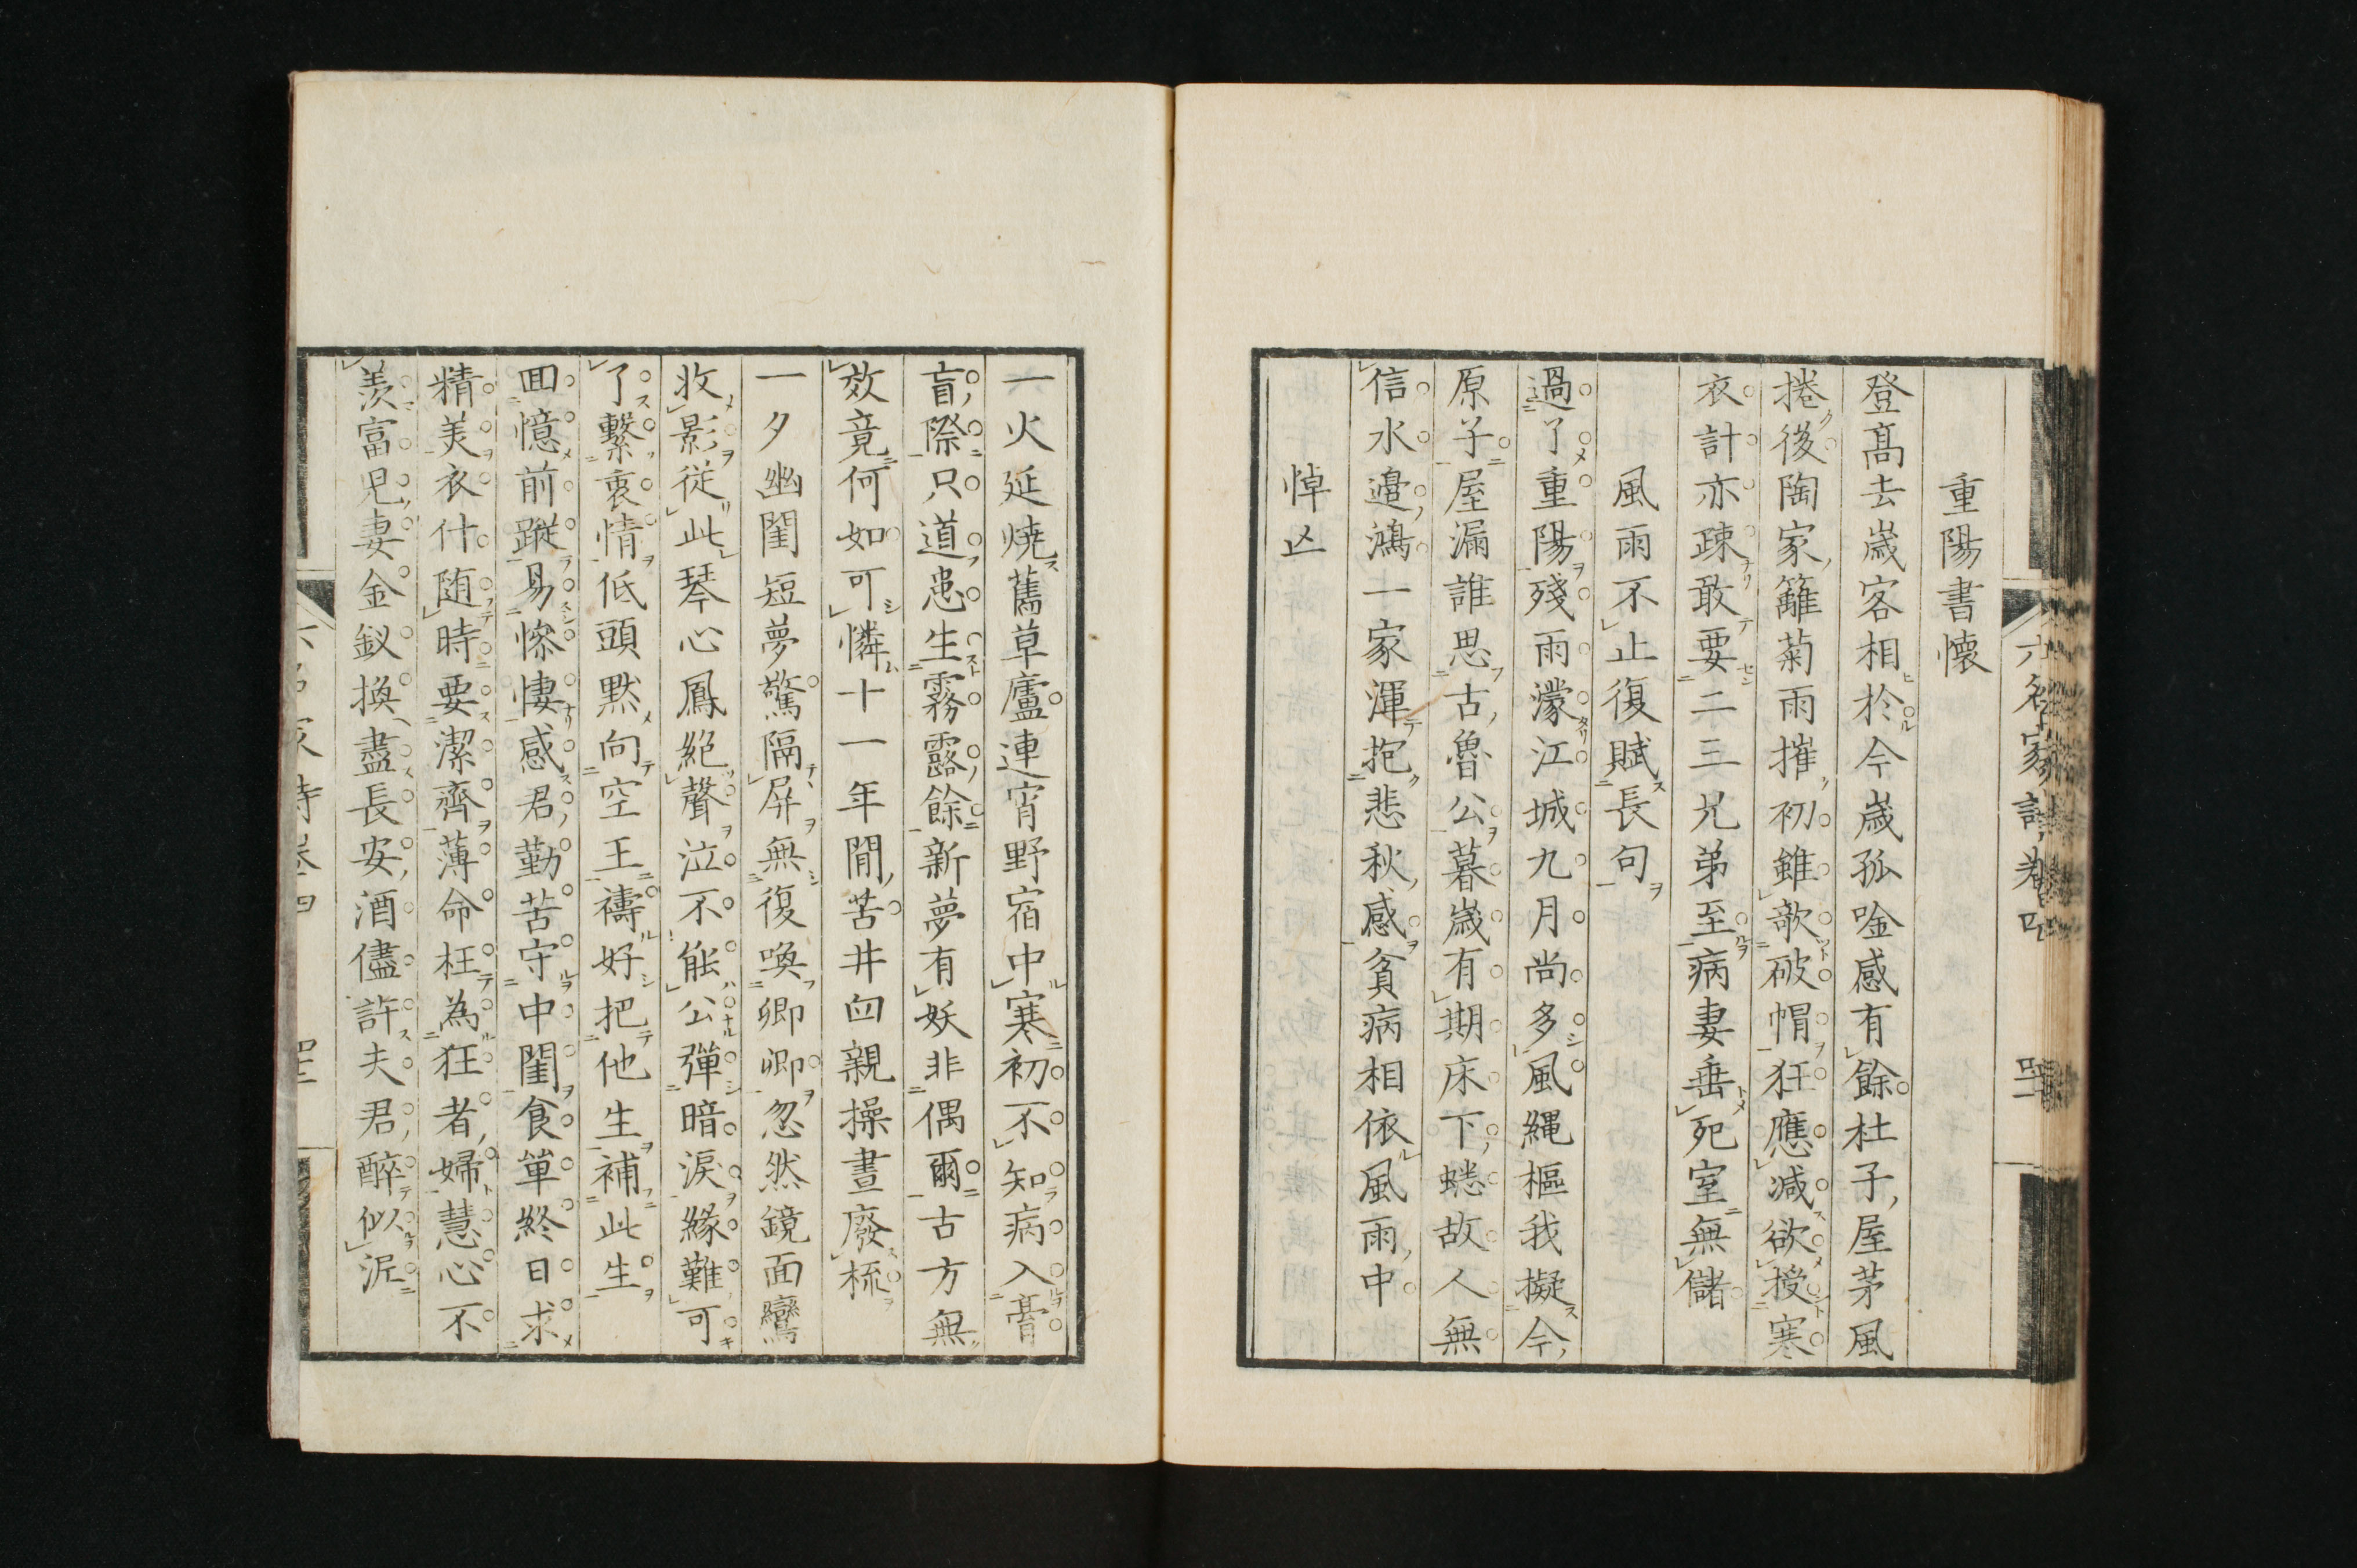 重陽書懷
登髙去歲客相於今歲孤唫感有餘杜子屋茅風
捲後陶家籬菊雨摧初雖欹破帽狂應減欲授寒
衣計亦疎敢要二三兄弟至病妻垂死室無儲
風雨不止復賦長句
過了重陽殘雨濛江城九月尚多風繩樞我擬今
原子屋漏誰思古魯公暮歲有期床下蟋故人無
信水邉鴻一家渾抱悲秋感貧病相依風雨中
悼亾
一火延燒舊草廬連宵野宿中寒初不知病入膏
盲際只道患生霧露餘新夢有妖非偶爾古方無
效竟何如可憐十一年間苦井臼親操晝廢梳
一夕幽閨短夢驚隔屏無復喚卿卿忽然鏡面鸞
收影從此琴心鳳絕聲泣不能公彈暗淚緣難可
了繫衷情低頭黙向空王禱好把他生補此生
囬憶前蹤易慘悽感君勤苦守中閨食單終日求
精美衣什随時要潔齊薄命枉為狂者婦慧心不
羨富兒妻金釵換盡長安酒儘許夫君醉似泥
六名家詩卷四